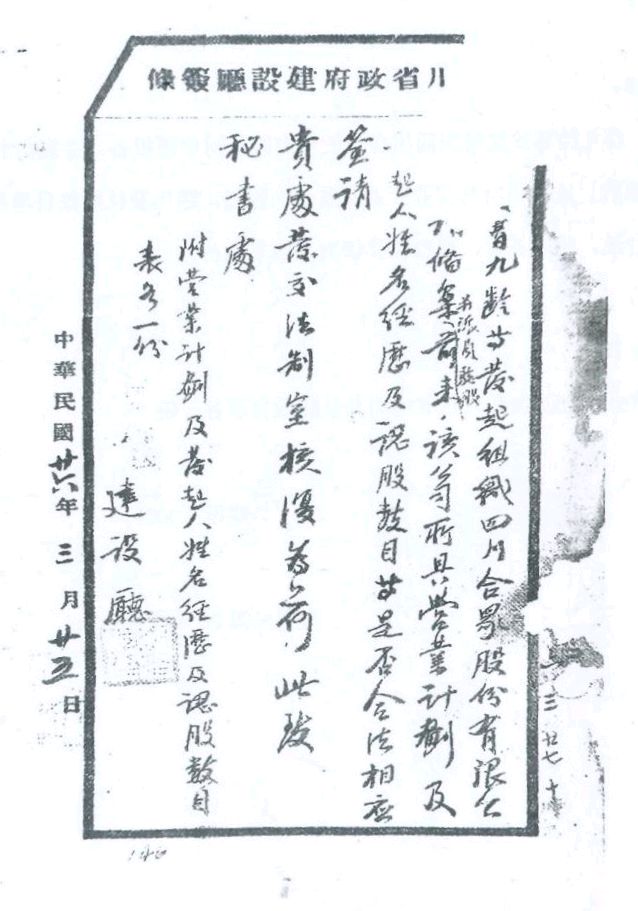 川省政府建設廳簽條
胥九齡等發起組織四川合眾股份有限公
備案前來該等所具營業計劃及
另派員驗股
起人姓名經歷及認股數目等是否合法相應
簽請
貴處發交法制室核復為荷此致
秘書處
附營業計劃及發起人姓名經歷及認股數目
表各一份
建設廳
中華民國廿六年三月廿五日
三廿七十
146